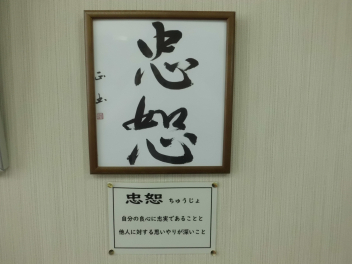 忠恕
忠恕 ちゅうじょ
自分の良心に忠実であることと
他人に対する思いやりが深いこと